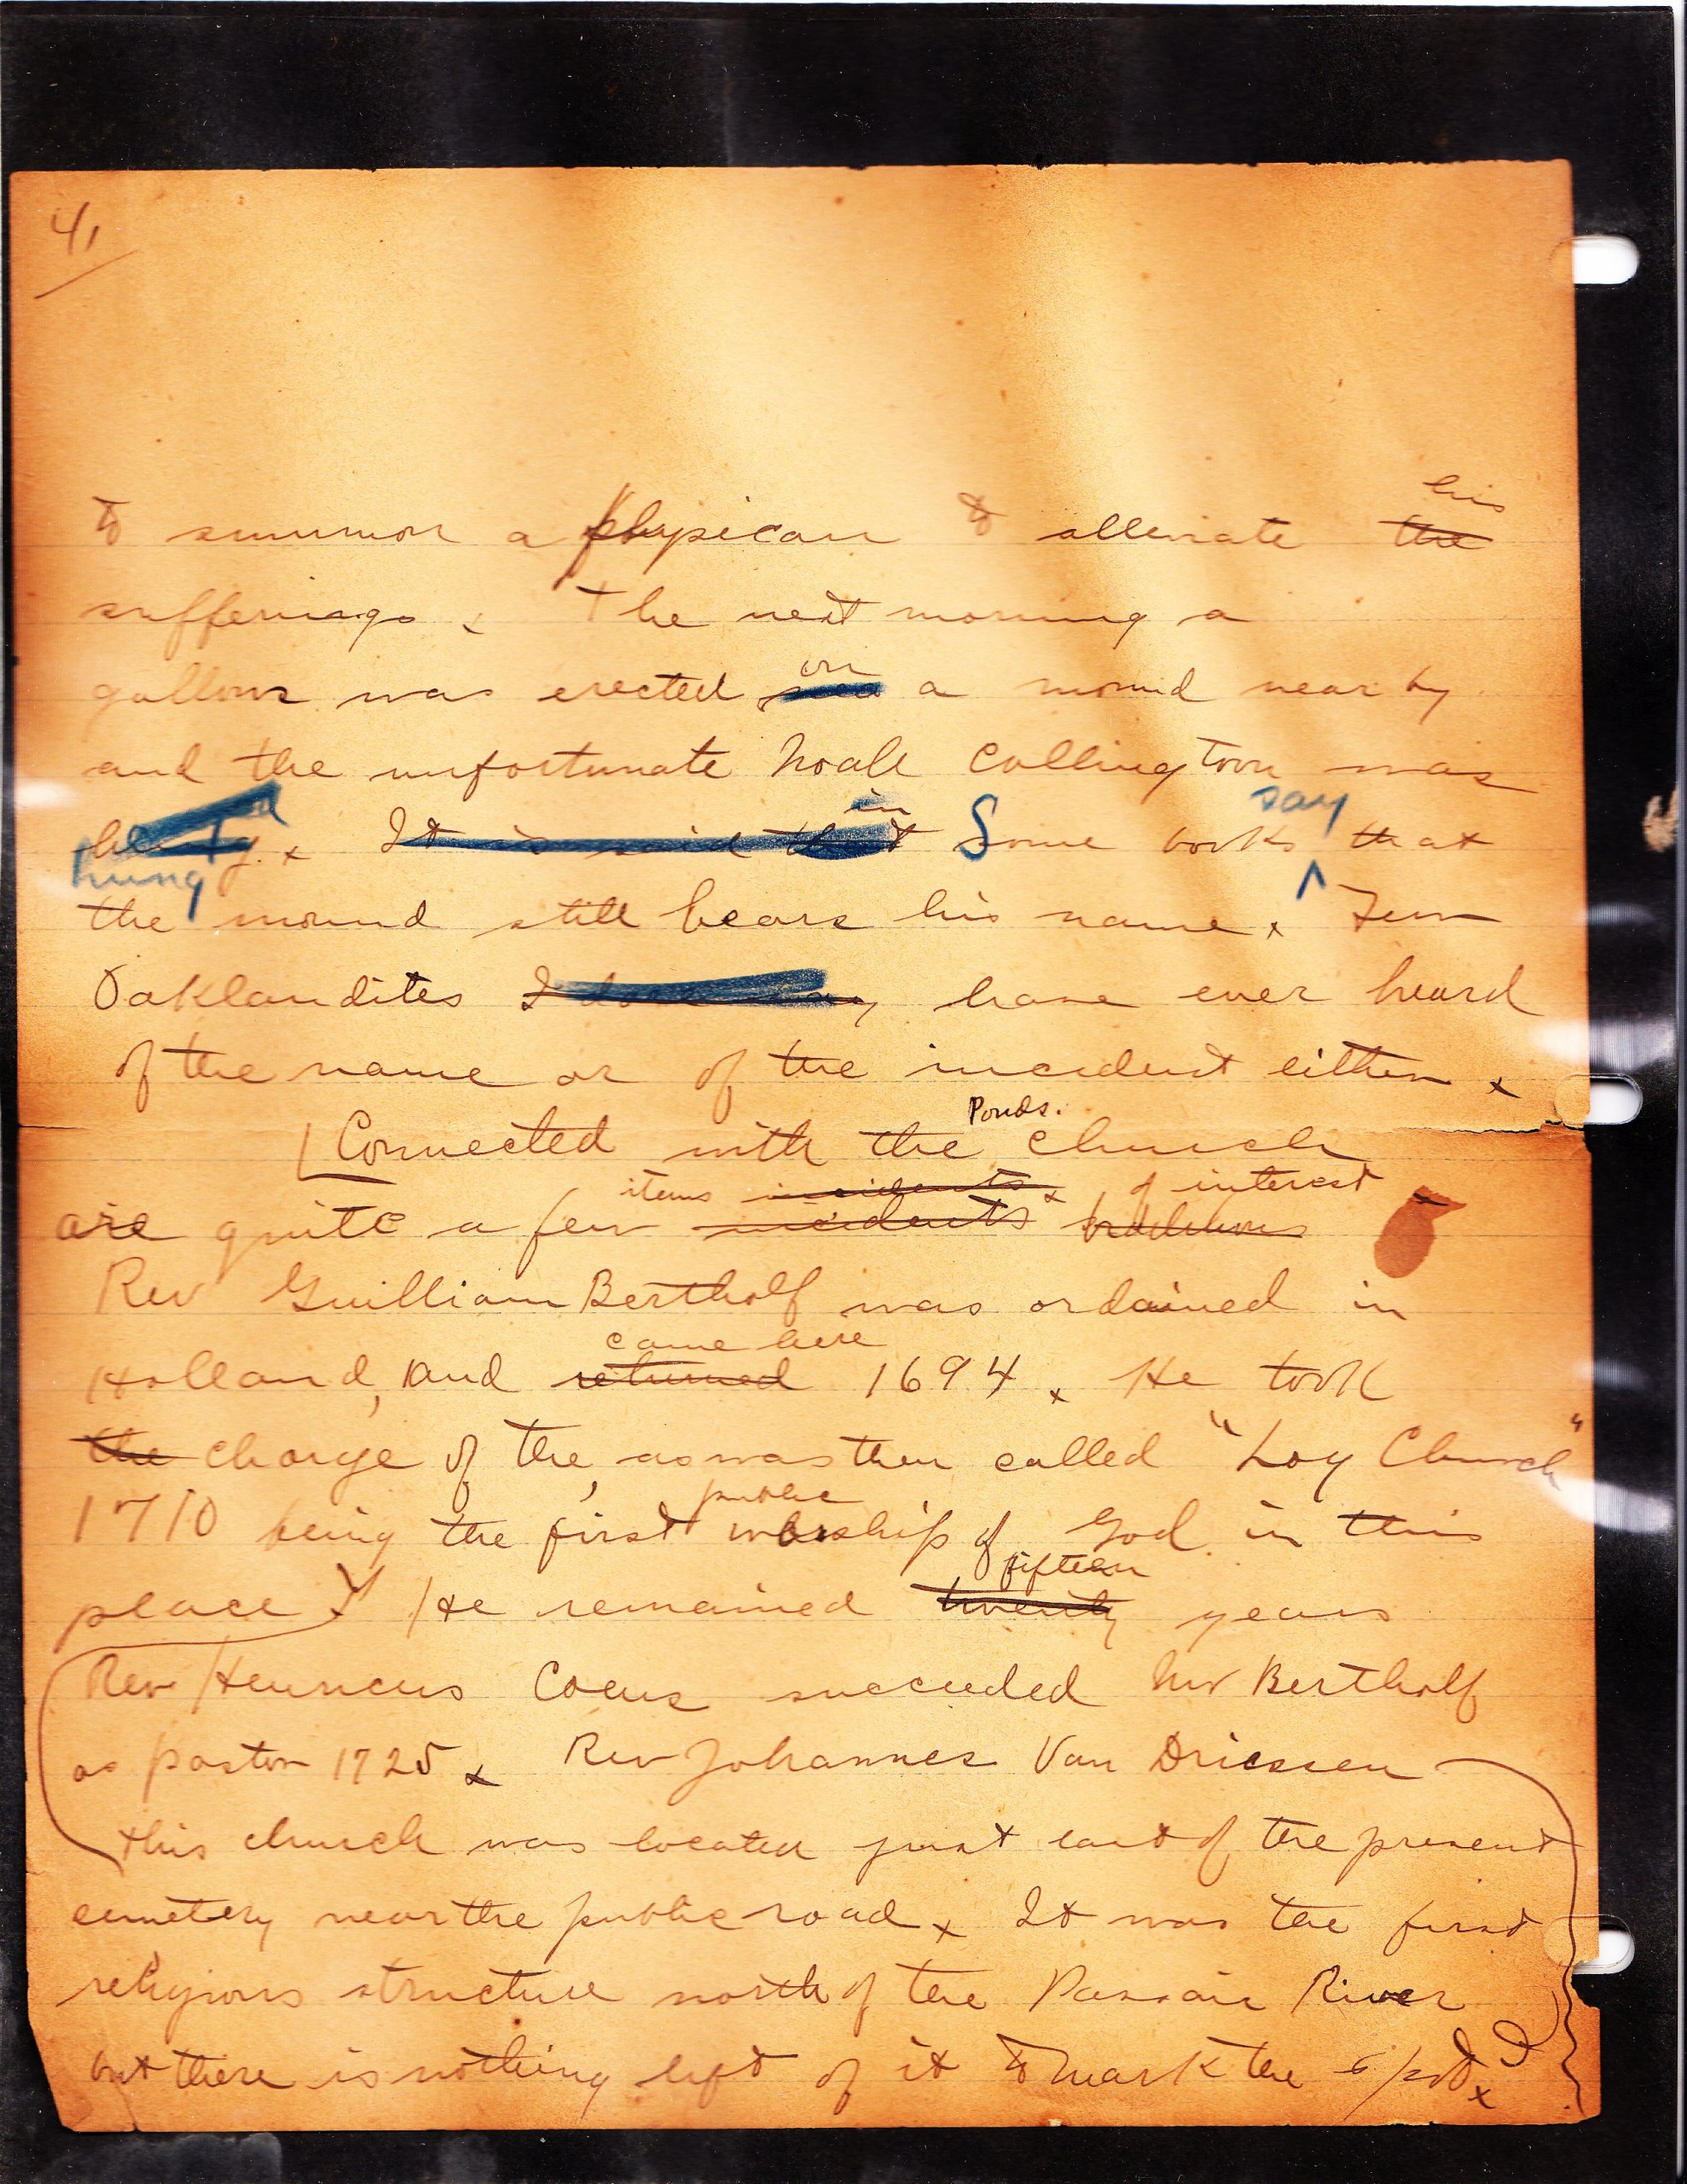 41
to summon a physican to alleviate the his
sufferings x The next morning a
gallows was erected on a mound near by
and the unfortunate Noah Collingtown was
hung x It is said that in Some books say that
the mound still bears his name x Few
Oaklandites I dare say have ever heard
of the name or of the incident either x
Connected with the Ponds. church
are quite a few items incidents x of interest
incidents traditions
Rev Guilliam Bertholf was ordained in
Holland, and returned came here 1694 x He took
the charge of the, as was then called "Log Church"
1710 being the first public worship of God in this
place x He remained twenty fifteen years
Rev Henricus Coens succeeded Mr Bertholf
as pastor 1725 x Rev Johannes Van Driessen
this church was located just east of the present
cemetery near the public road x It was the first
religious structure north of the Passaic River
but there is nothing left of it to mark the spot x